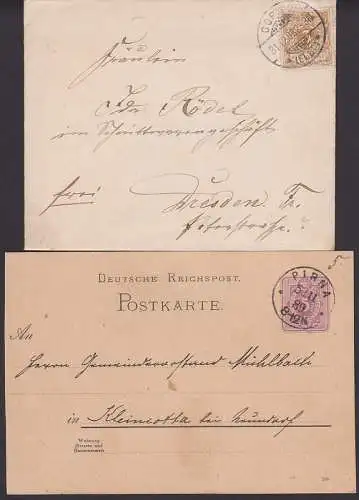 Fräulein
Ida Rödel
im Schnittwarengeschäft
frei
Dresden Fr.
COS
(ELBE)
5
DEUTSCHE REICHSPOST.
POSTKARTE.
PIRNA
89
8-12V.
An
Herrn Gemeindevorstand Mühlbach
in Kleincotta bei Neundorf
Wohnung
(Strasse und
Hausnummer)